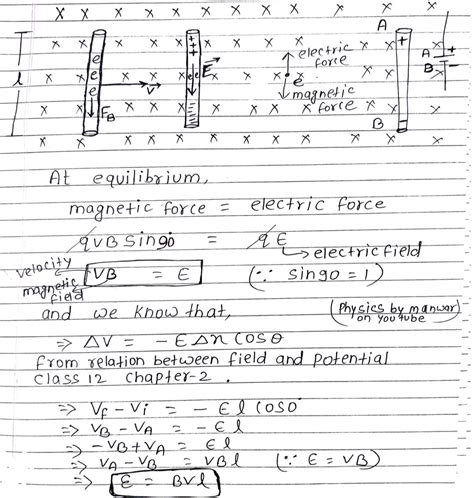 x x x x x x x x x
A
l
e
e
e
F_B
v⃗
+++
ee
E⃗
electric
force
e
magnetic
force
+
A
B
+
-
B
At equilibrium,
magnetic force = electric force
qvBsin90 = qE
electric field
velocity
magnetic
field
VB = E (∵ sin90 = 1)
and we know that,
(Physics by manwar)
on you tube
⇒ ΔV = -EΔxcosθ
from relation between field and potential
class 12 chapter-2.
⇒ Vf - Vi = -El cos0
⇒ VB - VA = -El
⇒ -VB + VA = El
⇒ VA - VB = VBl (∵ E = VB)
⇒ ε = Bvl